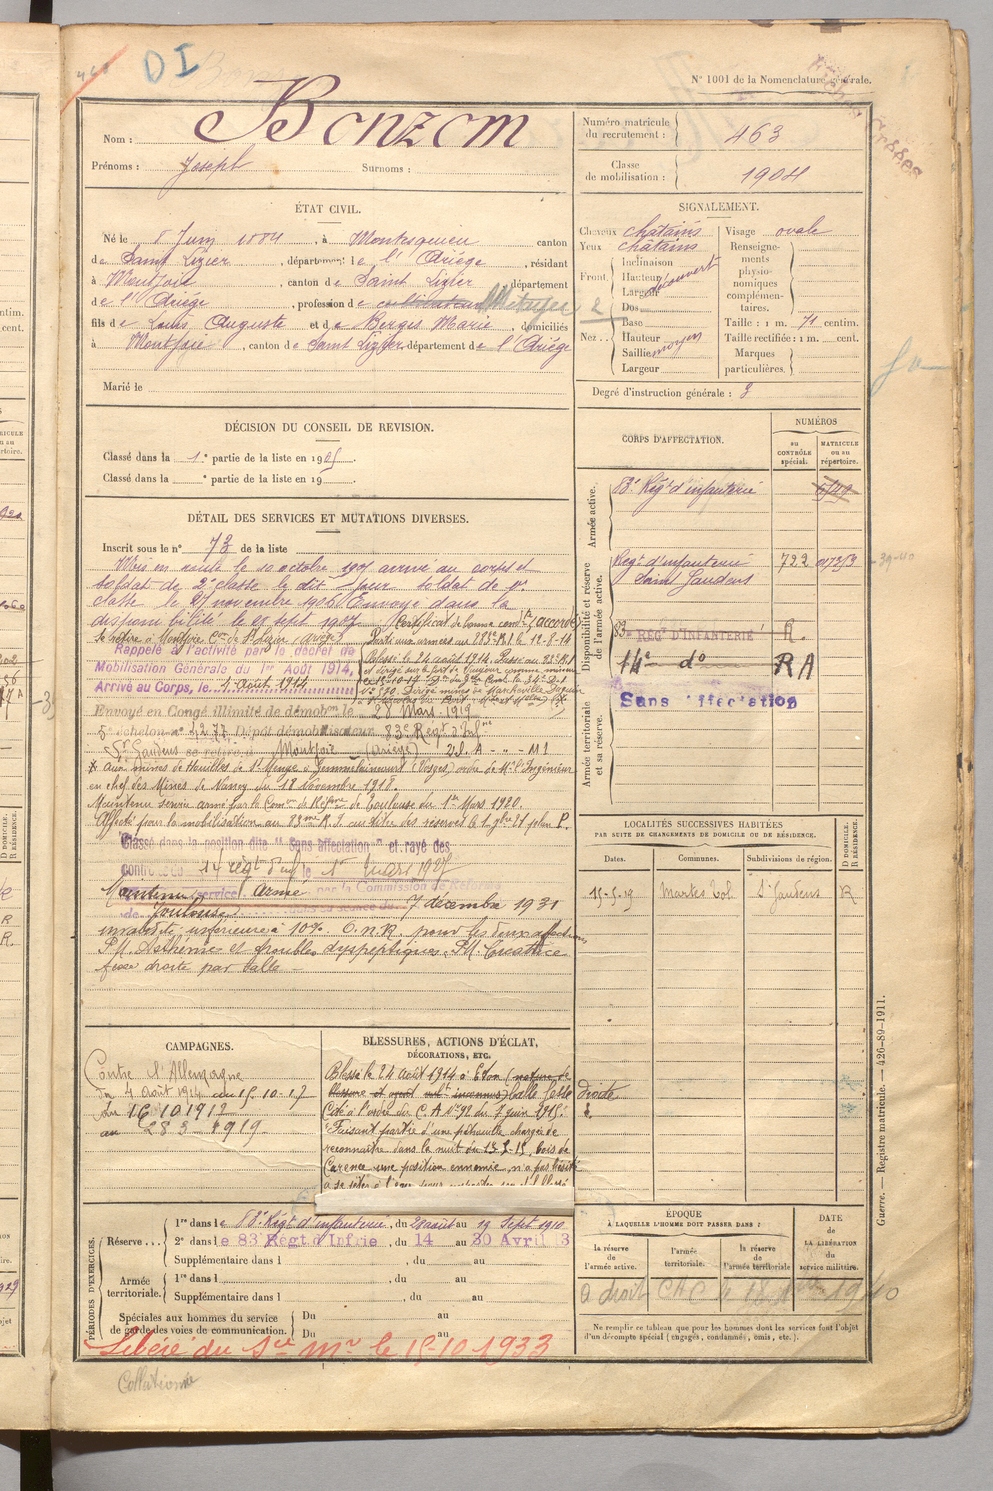 D I
N° 1001 de la Nomenclature générale.
Nom : Bonzom
Prénoms : Joseph Surnoms :
Numéro matricule du recrutement : 463
Classe de mobilisation : 1904
ÉTAT CIVIL.
Né le 8 Juin 1884, à Montesquieu canton
de Saint Lizier, département de l'Ariège, résidant
à Montjoie, canton de Saint Lizier, département
de l'Ariège, profession de cultivateur
fils de Louis Auguste et de Berges Marie, domiciliés
à Montjoie, canton de Saint Lizier département de l'Ariège
Marié le
SIGNALEMENT.
Cheveux châtains
Yeux châtains
Front Inclinaison
Hauteur découvert
Largeur
Nez .. Dos
Base
Hauteur
Saillie moyen
Largeur
Visage ovale
Renseignements physionomiques complémentaires.
Taille : 1 m. 71 centim.
Taille rectifiée : 1 m. cent.
Marques particulières.
Degré d'instruction générale : 3
DÉCISION DU CONSEIL DE REVISION.
Classé dans la 1e partie de la liste en 1905.
Classé dans la e partie de la liste en 19 .
CORPS D'AFFECTATION.
NUMÉROS
au CONTRÔLE spécial.
MATRICULE ou au répertoire.
Armée active.
83e Régt d'infanterie
Disponibilité et réserve de l'armée active.
Regt d'infanterie 722
Saint Gaudens
83e REGt D'INFANTERIE R.
14e do RA
Sans affectation
Armée territoriale et sa réserve.
DÉTAIL DES SERVICES ET MUTATIONS DIVERSES.
Inscrit sous le n° 73 de la liste
Mis en route le 10 octobre arrivé au corps et
soldat de 2e classe le dit jour soldat de 1re
classe le 27 novembre 1906 Envoyé dans la
disponibilité le sept 1907 Certificat de bonne conduite accordé
se retire à Montjoie Con de St Lizier (Ariège)
Rappelé à l'activité par le décret de
Mobilisation Générale du 1er Août 1914,
Arrivé au Corps, le Août 1914
Parti aux armées au R.I. le 12-8-14
Blessé le 24 août 1914. Passé au
Envoyé en Congé illimité de démobon le 28 Mars 1919
5e échelon n° Dépôt démobilisateur 83e Regt d'Infie
St Gaudens se retire à Montjoie (Ariège)
aux mines de Houilles de Gemmelaincourt (Vosges) ordre de Mr l'Ingénieur
en chef des Mines de Nancy du 18 Novembre 1918.
Maintenu service armé par la Comon de Réforme de Toulouse du 1er Mars 1920.
Affecté pour la mobilisation au 83me R.I. au titre des réserves
Classé dans la position dite " Sans affectation " et rayé des
contrôles du 14 régt d'inf le 1er mars
Maintenu service Armé par la Commission de Réforme
de Toulouse 7 décembre 1931
invalidité inférieure à 10%.
Asthénie et troubles dyspeptiques. Cicatrice
fesse droite par balle
LOCALITÉS SUCCESSIVES HABITÉES
PAR SUITE DE CHANGEMENTS DE DOMICILE OU DE RÉSIDENCE.
Dates. Communes. Subdivisions de région. D DOMICILE. R RÉSIDENCE.
15-5-19 Martes Tol. St Gaudens R
CAMPAGNES.
Contre l'Allemagne
du 4 Août 1914 au 15.10.17
du 16 10 1917
au 28 3 1919
BLESSURES, ACTIONS D'ÉCLAT,
DÉCORATIONS, ETC.
Blessé le 24 août 1914 à Eton (nature de
blessure et inconnus) balle fesse droite
Cité à l'ordre du C. A. n° 92 du 7 juin 1915 :
"Faisant partie d'une patrouille chargée de
reconnaître dans la nuit du bois de
Carence une position ennemie, n'a pas hésité
PÉRIODES D'EXERCICES.
Réserve ... 1re dans le 83e Régt d'infanterie, du 28 août au 19 Sept 1910
2e dans le 83 Régt d Infrie, du 14 au 30 Avril 13
Supplémentaire dans l , du au
Armée territoriale. 1re dans l , du au
Supplémentaire dans l , du au
Spéciales aux hommes du service de garde des voies de communication. Du au
Du au
Libéré du Sce Mre le 15-10-1933
Collationné
ÉPOQUE
À LAQUELLE L'HOMME DOIT PASSER DANS :
la réserve de l'armée active.
l'armée territoriale.
la réserve de l'armée territoriale
DATE de LA LIBÉRATION du service militaire.
a droit CAC le 18 1940
Ne remplir ce tableau que pour les hommes dont les services font l'objet
d'un décompte spécial (engagés, condamnés, omis, etc.).
Guerre. — Registre matricule. — 426-89-1911.